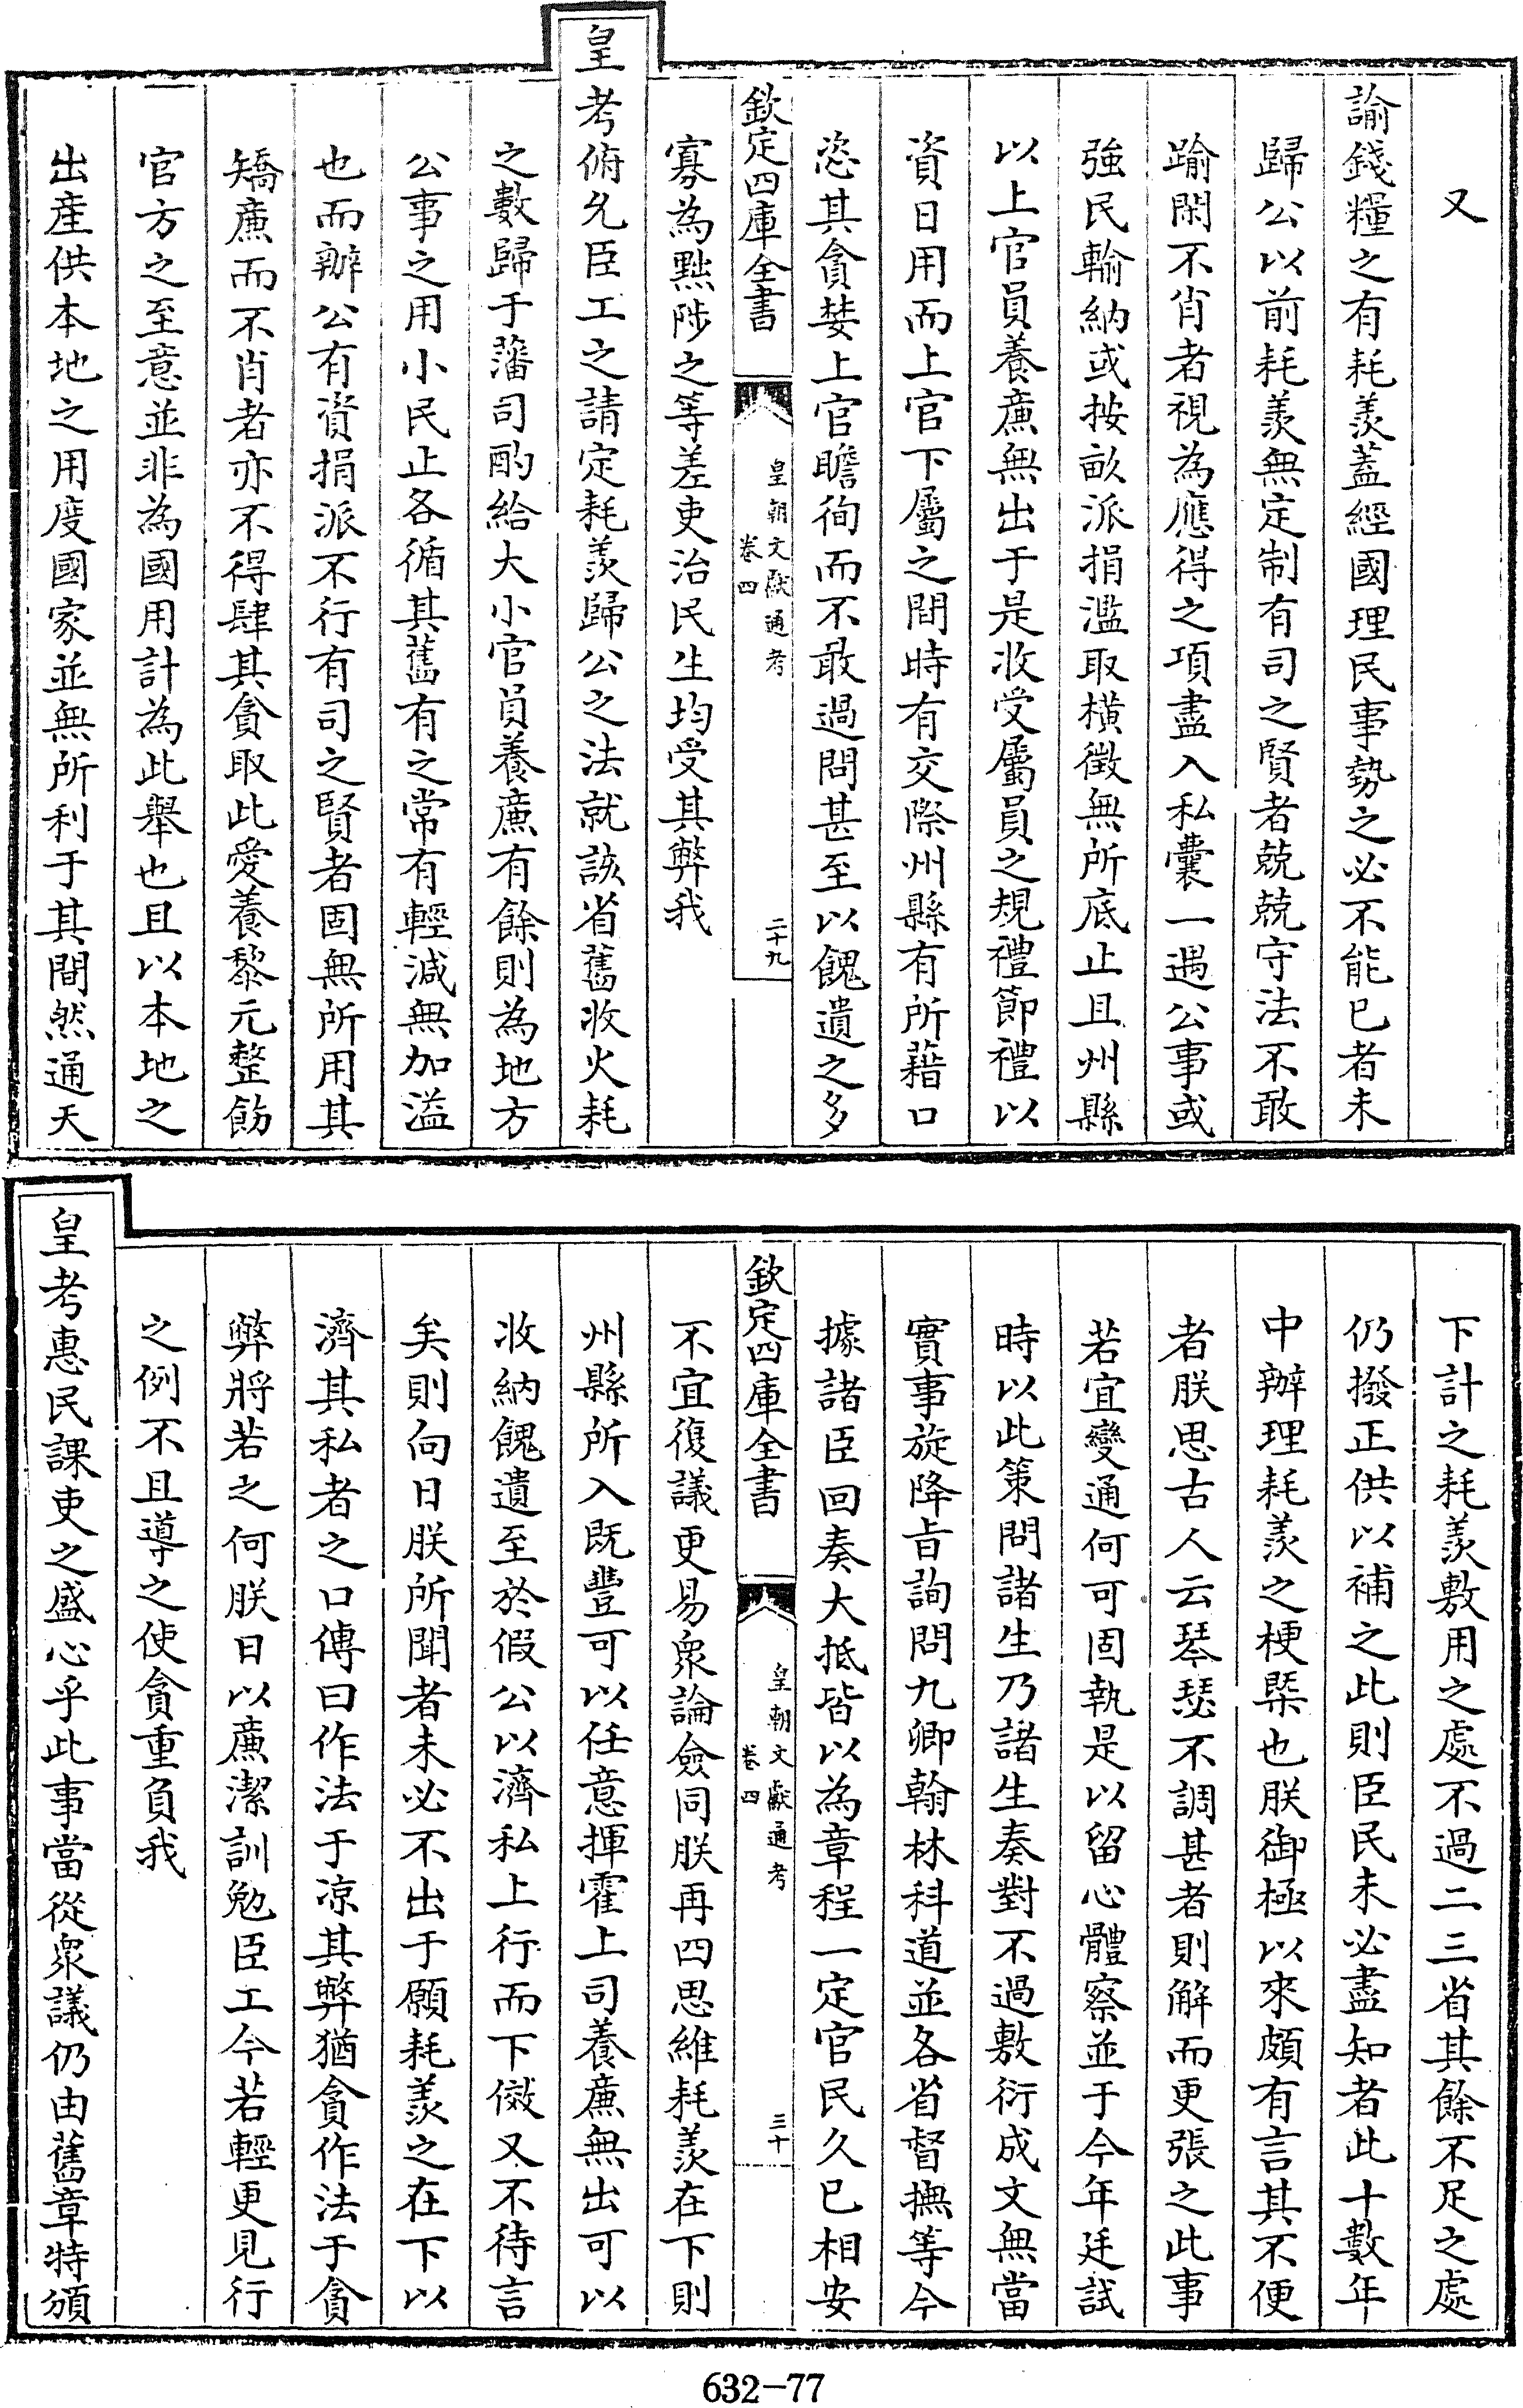 又
諭錢糧之有耗羨蓋經國理民事勢之必不能已者未
歸公以前耗羨無定制有司之賢者兢兢守法不敢
踰閑不肖者視為應得之項盡入私囊一遇公事或
強民輸納或按畝派捐濫取橫徵無所底止且州縣
以上官員養廉無出于是收受屬員之規禮節禮以
資日用而上官下屬之間時有交際州縣有所藉口
恣其貪婪上官瞻徇而不敢過問甚至以餽遺之多
欽定四庫全書
皇朝文獻通考
卷四
二十九
寡為黜陟之等差吏治民生均受其弊我
皇考俯允臣工之請定耗羨歸公之法就該省舊收火耗
之數歸于藩司酌給大小官員養廉有餘則為地方
公事之用小民止各循其舊有之常有輕減無加溢
也而辦公有資捐派不行有司之賢者固無所用其
矯廉而不肖者亦不得肆其貪取此愛養黎元整飭
官方之至意並非為國用計為此舉也且以本地之
出產供本地之用度國家並無所利于其間然通天
下計之耗羨敷用之處不過二三省其餘不足之處
仍撥正供以補之此則臣民未必盡知者此十數年
中辦理耗羨之梗槩也朕御極以來頗有言其不便
者朕思古人云琴瑟不調甚者則解而更張之此事
若宜變通何可固執是以留心體察並于今年廷試
時以此策問諸生乃諸生奏對不過敷衍成文無當
實事旋降旨詢問九卿翰林科道並各省督撫等今
據諸臣回奏大抵皆以為章程一定官民久已相安
欽定四庫全書
皇朝文獻通考
卷四
三十
不宜復議更易衆論僉同朕再四思維耗羨在下則
州縣所入既豐可以任意揮霍上司養廉無出可以
收納餽遺至於假公以濟私上行而下傚又不待言
矣則向日朕所聞者未必不出于願耗羨之在下以
濟其私者之口傳曰作法于凉其弊猶貪作法于貪
弊將若之何朕日以廉潔訓勉臣工今若輕更見行
之例不且導之使貪重負我
皇考惠民課吏之盛心乎此事當從衆議仍由舊章特頒
632-77